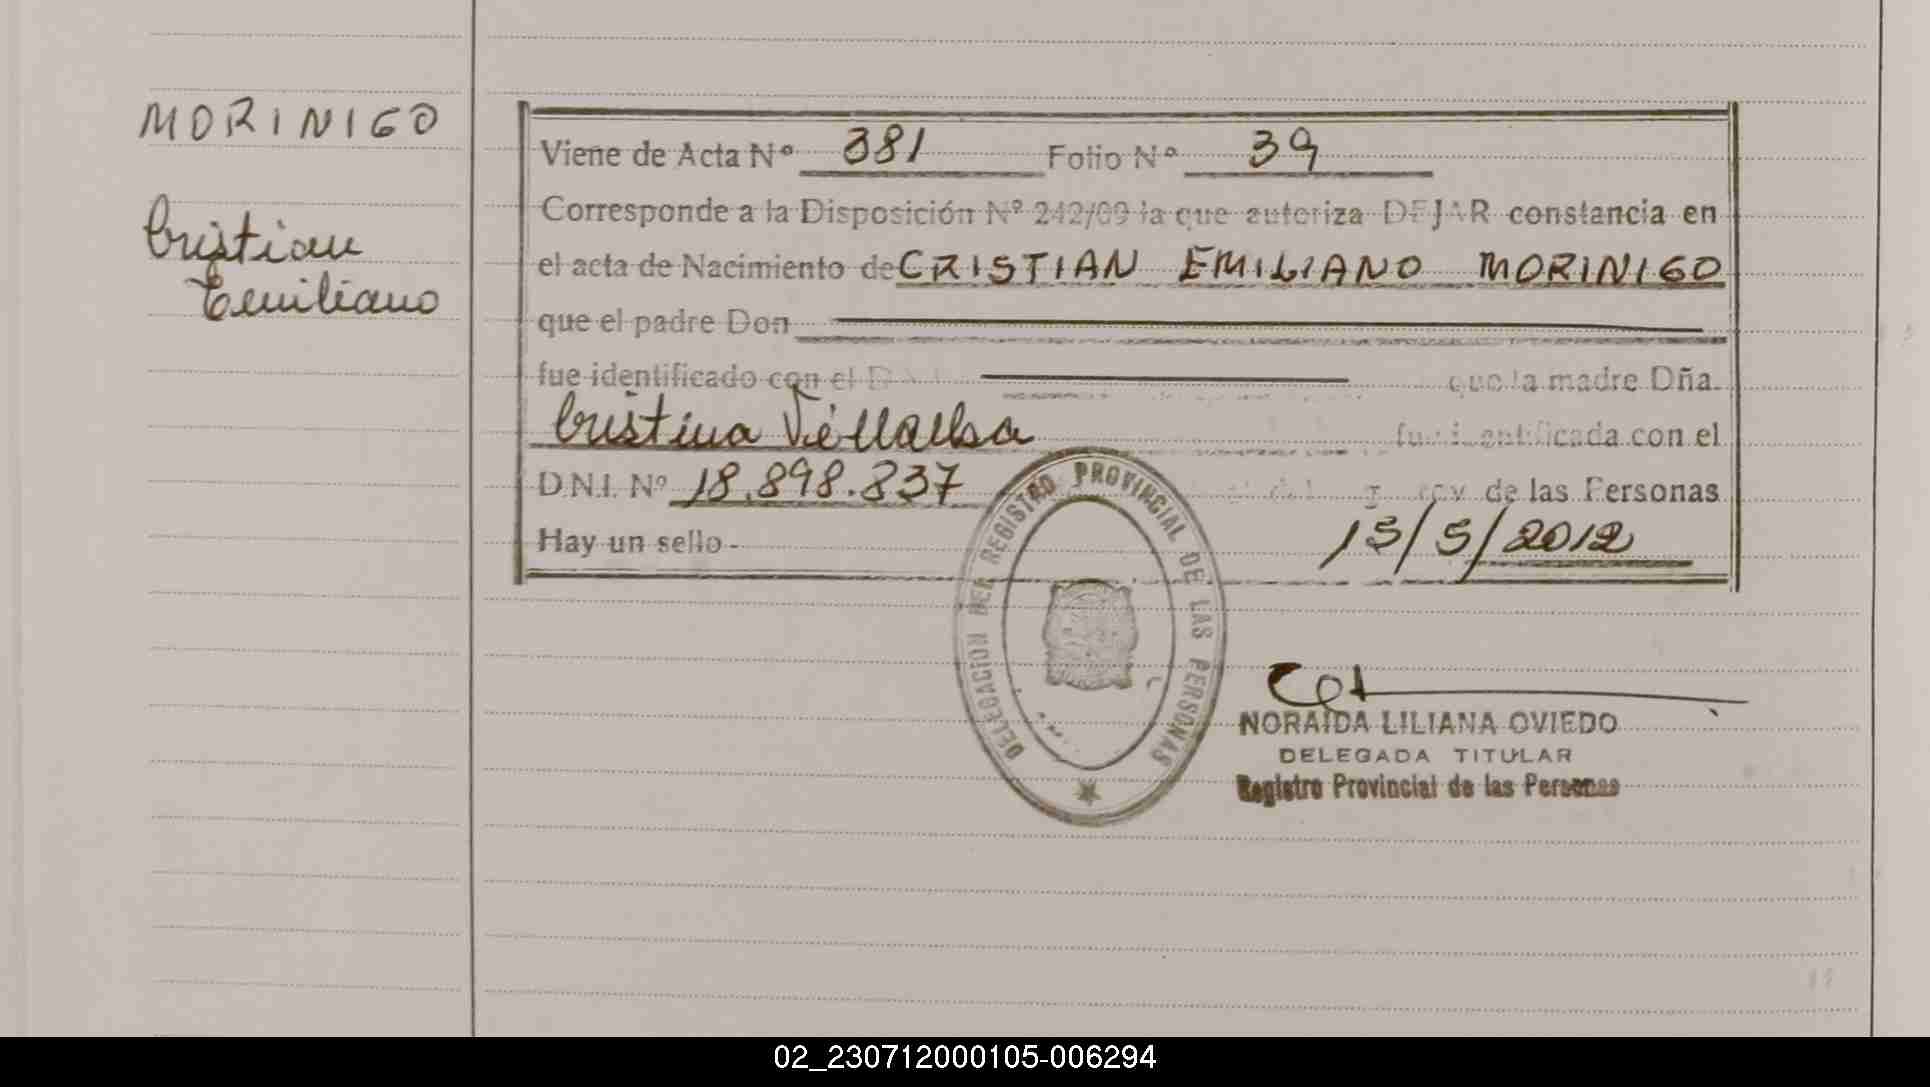 MORINIGO
Cristian
Emiliano
Viene de Acta Nº 381 Folio Nº 39
Corresponde a la Disposición Nº 242/09 la que autoriza DEJAR constancia en
el acta de Nacimiento de CRISTIAN EMILIANO MORINIGO
que el padre Don
fue identificado con el D.N.I. que la madre Dña.
Cristina Villalba fue identificada con el
D.N.I. Nº 18.898.837 de las Personas
Hay un sello - 15/5/2012
DELEGACION DEL REGISTRO PROVINCIAL DE LAS PERSONAS
NORAIDA LILIANA OVIEDO
DELEGADA TITULAR
Registro Provincial de las Personas
02_230712000105-006294